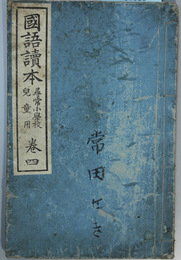 國語讀本
尋常小學校
兒童用
卷四
常田とき